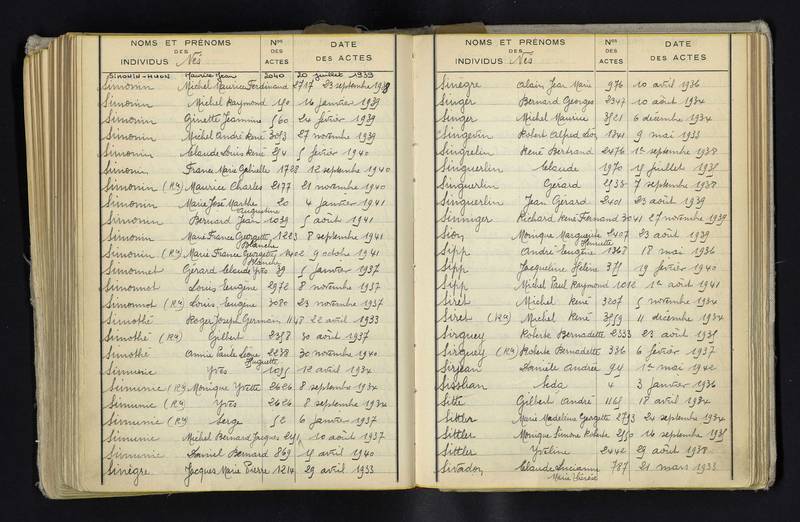 NOMS ET PRÉNOMS
DES
INDIVIDUS Nés
Nos
DES
ACTES
DATE
DES ACTES
SIMONIN-HUON Maurice Jean 2040 20 juillet 1939
Simonin Michel Maurice Ferdinand 2717 23 septembre 1938
Simonin Michel Raymond 140 16 janvier 1939
Simonin Ginette Jeannine 560 24 février 1939
Simonin Michel André René 3093 27 novembre 1939
Simonin Claude Louis René 294 5 février 1940
Simonin France Marie Gabielle 1728 12 septembre 1940
Simonin (Ron) Maurice Charles 2177 21 novembre 1940
Simonin Marie José Marthe 20 4 janvier 1941
Augustine
Simonin Bernard Jean 1039 5 août 1941
Simonin Marie France Georgette 1223 8 septembre 1941
Blanche
Simonin (Ron) Marie France Georgette 1402 9 octobre 1941
Blanche
Simonnet Gérard Claude Yves 39 5 janvier 1937
Simonnot Louis Eugène 2972 8 novembre 1937
Simonnot (Ron) Louis Eugène 3080 23 novembre 1937
Simothé Roger Joseph Germain 1148 22 avril 1933
Simothé (Ron) Gilbert 2358 30 août 1937
Simothé Annie Paule Léone 2238 30 novembre 1940
Huguette
Simunic Yves 1095 12 avril 1934
Simunic (Ron) Monique Yvette 2626 8 septembre 1934
Simunic (Ron) Yves 2626 8 septembre 1934
Simunic (Ron) Serge 52 6 janvier 1937
Simunic Michel Bernard Jacques 10 août 1937
Simunic Daniel Bernard 869 avril 1940
Sinègre Jacques Marie Pierre 1214 29 avril 1933
NOMS ET PRÉNOMS
DES
INDIVIDUS Nés
Nos
DES
ACTES
DATE
DES ACTES
Sinègre Alain Jean Marie 976 10 avril 1936
Singer Bernard Georges 2347 10 août 1934
Singer Michel Maurice 3521 6 décembre 1934
Singevin Robert Alfred Léon 1341 9 mai 1933
Singrelin René Bertrand 2476 1er septembre 1938
Singuerlin Claude 1970 15 juillet 1935
Singuerlin Gérard 2538 7 septembre 1938
Singuerlin Jean Gérard 2401 23 août 1939
Sinniger Richard René Fernand 3041 27 novembre 1939
Sion Monique Marguerite 2407 23 août 1939
Henriette
Sipp André Eugène 1368 18 mai 1936
Sipp Jacqueline Hélène 371 19 février 1940
Sipp Michel Paul Raymond 1012 1er août 1941
Siret Michel René 3207 5 novembre 1934
Siret (Ron) Michel René 3559 11 décembre 1934
Sirguey Roberte Bernadette 2333 23 août 1935
Sirguey (Ron) Roberte Bernadette 336 6 février 1937
Sirjean Danièle Andrée 94 1er mai 1942
Sissoian Aeda 4 3 janvier 1936
Sitte Gilbert André 1165 18 avril 1934
Sittler Marie Madeleine Georgette 2793 24 septembre 1934
Sittler Monique Simone Roberte 2550 14 septembre 1935
Sittler Yveline 2442 29 août 1938
Sivadon Claude Lucienne 787 21 mars 1933
Marie Thérèse